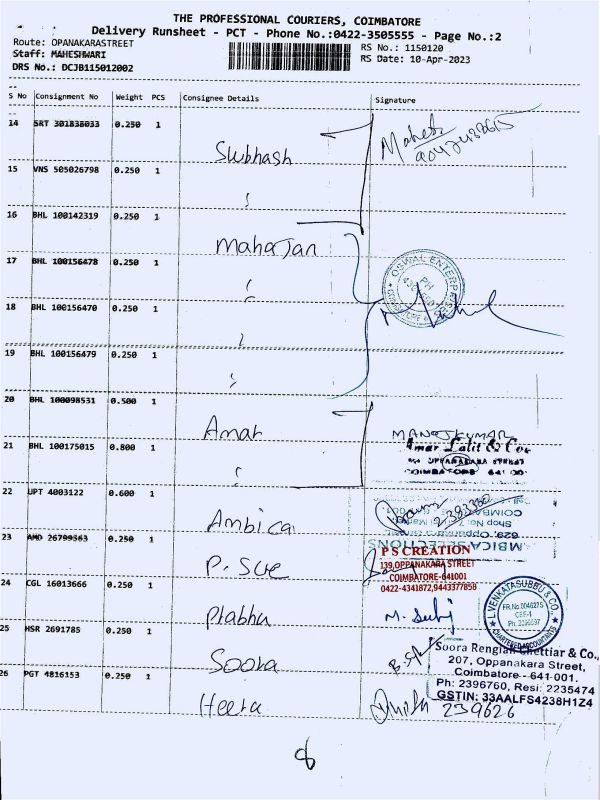 THE PROFESSIONAL COURIERS, COIMBATORE
Delivery Runsheet - PCT - Phone No.:0422-3505555 - Page No.:2
Route: OPANAKARASTREET
Staff: MAHESHWARI
DRS No.: DCJB115012002
RS No.: 1150120
RS Date: 10-Apr-2023
S No Consignment No Weight PCS Consignee Details Signature
14 SRT 301838033 0.250 1 Subhash
15 VNS 505026798 0.250 1
16 BHL 100142319 0.250 1 Mahajan
OSWAL ENTERPRISES
17 BHL 100156478 0.250 1
18 BHL 100156470 0.250 1
19 BHL 100156479 0.250 1
20 BHL 100098531 0.500 1 Amar
MANOJ KUMAR
Amar Lalit & Co.
COIMBATORE
21 BHL 100175015 0.800 1
22 UPT 4003122 0.600 1 Ambica
AMBICA SELECTIONS
23 AMD 26799363 0.250 1 P. Sue
P S CREATION
139,OPPANAKARA STREET
COIMBATORE-641001
0422-4341872,9443377858
24 CGL 16013666 0.250 1 Prabhu
L.VENKATASUBBU & CO.,
CHARTERED ACCOUNTANTS
25 HSR 2691785 0.250 1 Soora
Soora Rengiah Chettiar & Co.,
207, Oppanakara Street,
Coimbatore - 641 001.
Ph: 2396760, Resi: 2235474
GSTIN: 33AALFS4238H1Z4
26 PGT 4816153 0.250 1 Heera
239626
8